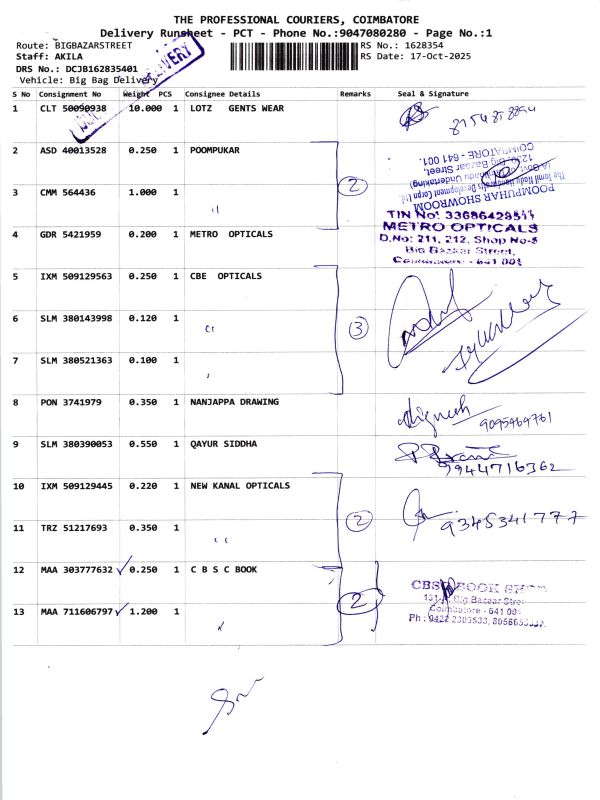 THE PROFESSIONAL COURIERS, COIMBATORE
Delivery Runsheet - PCT - Phone No.:9047080280 - Page No.:1
Route: BIGBAZARSTREET
RS No.: 1628354
Staff: AKILA
RS Date: 17-Oct-2025
DRS No.: DCJB162835401
Vehicle: Big Bag Delivery
DELIVERY
S No Consignment No Weight PCS Consignee Details Remarks Seal & Signature
1 CLT 50090938 10.000 1 LOTZ GENTS WEAR
2 ASD 40013528 0.250 1 POOMPUKAR
3 CMM 564436 1.000 1 〃 2
POOMPUHAR SHOWROOM
The Tamil Nadu Handicrafts Development Corpn Ltd
(A Govt. of Tamilnadu Undertaking)
Big Bazaar Street,
COIMBATORE - 641 001.
4 GDR 5421959 0.200 1 METRO OPTICALS
METRO OPTICALS
D.No: 211, 212, Shop No-5
Big Bazaar Street,
Coimbatore - 641 001
5 IXM 509129563 0.250 1 CBE OPTICALS
6 SLM 380143998 0.120 1 〃 3
7 SLM 380521363 0.100 1 〃
8 PON 3741979 0.350 1 NANJAPPA DRAWING Vignesh
9095464761
9 SLM 380390053 0.550 1 QAYUR SIDDHA
9944716362
10 IXM 509129445 0.220 1 NEW KANAL OPTICALS
2 9345341777
11 TRZ 51217693 0.350 1 〃
12 MAA 303777632 ✓ 0.250 1 C B S C BOOK
13 MAA 711606797 ✓ 1.200 1 〃 2
CBSC BOOK SHOP
Big Bazaar Street
Coimbatore - 641 001